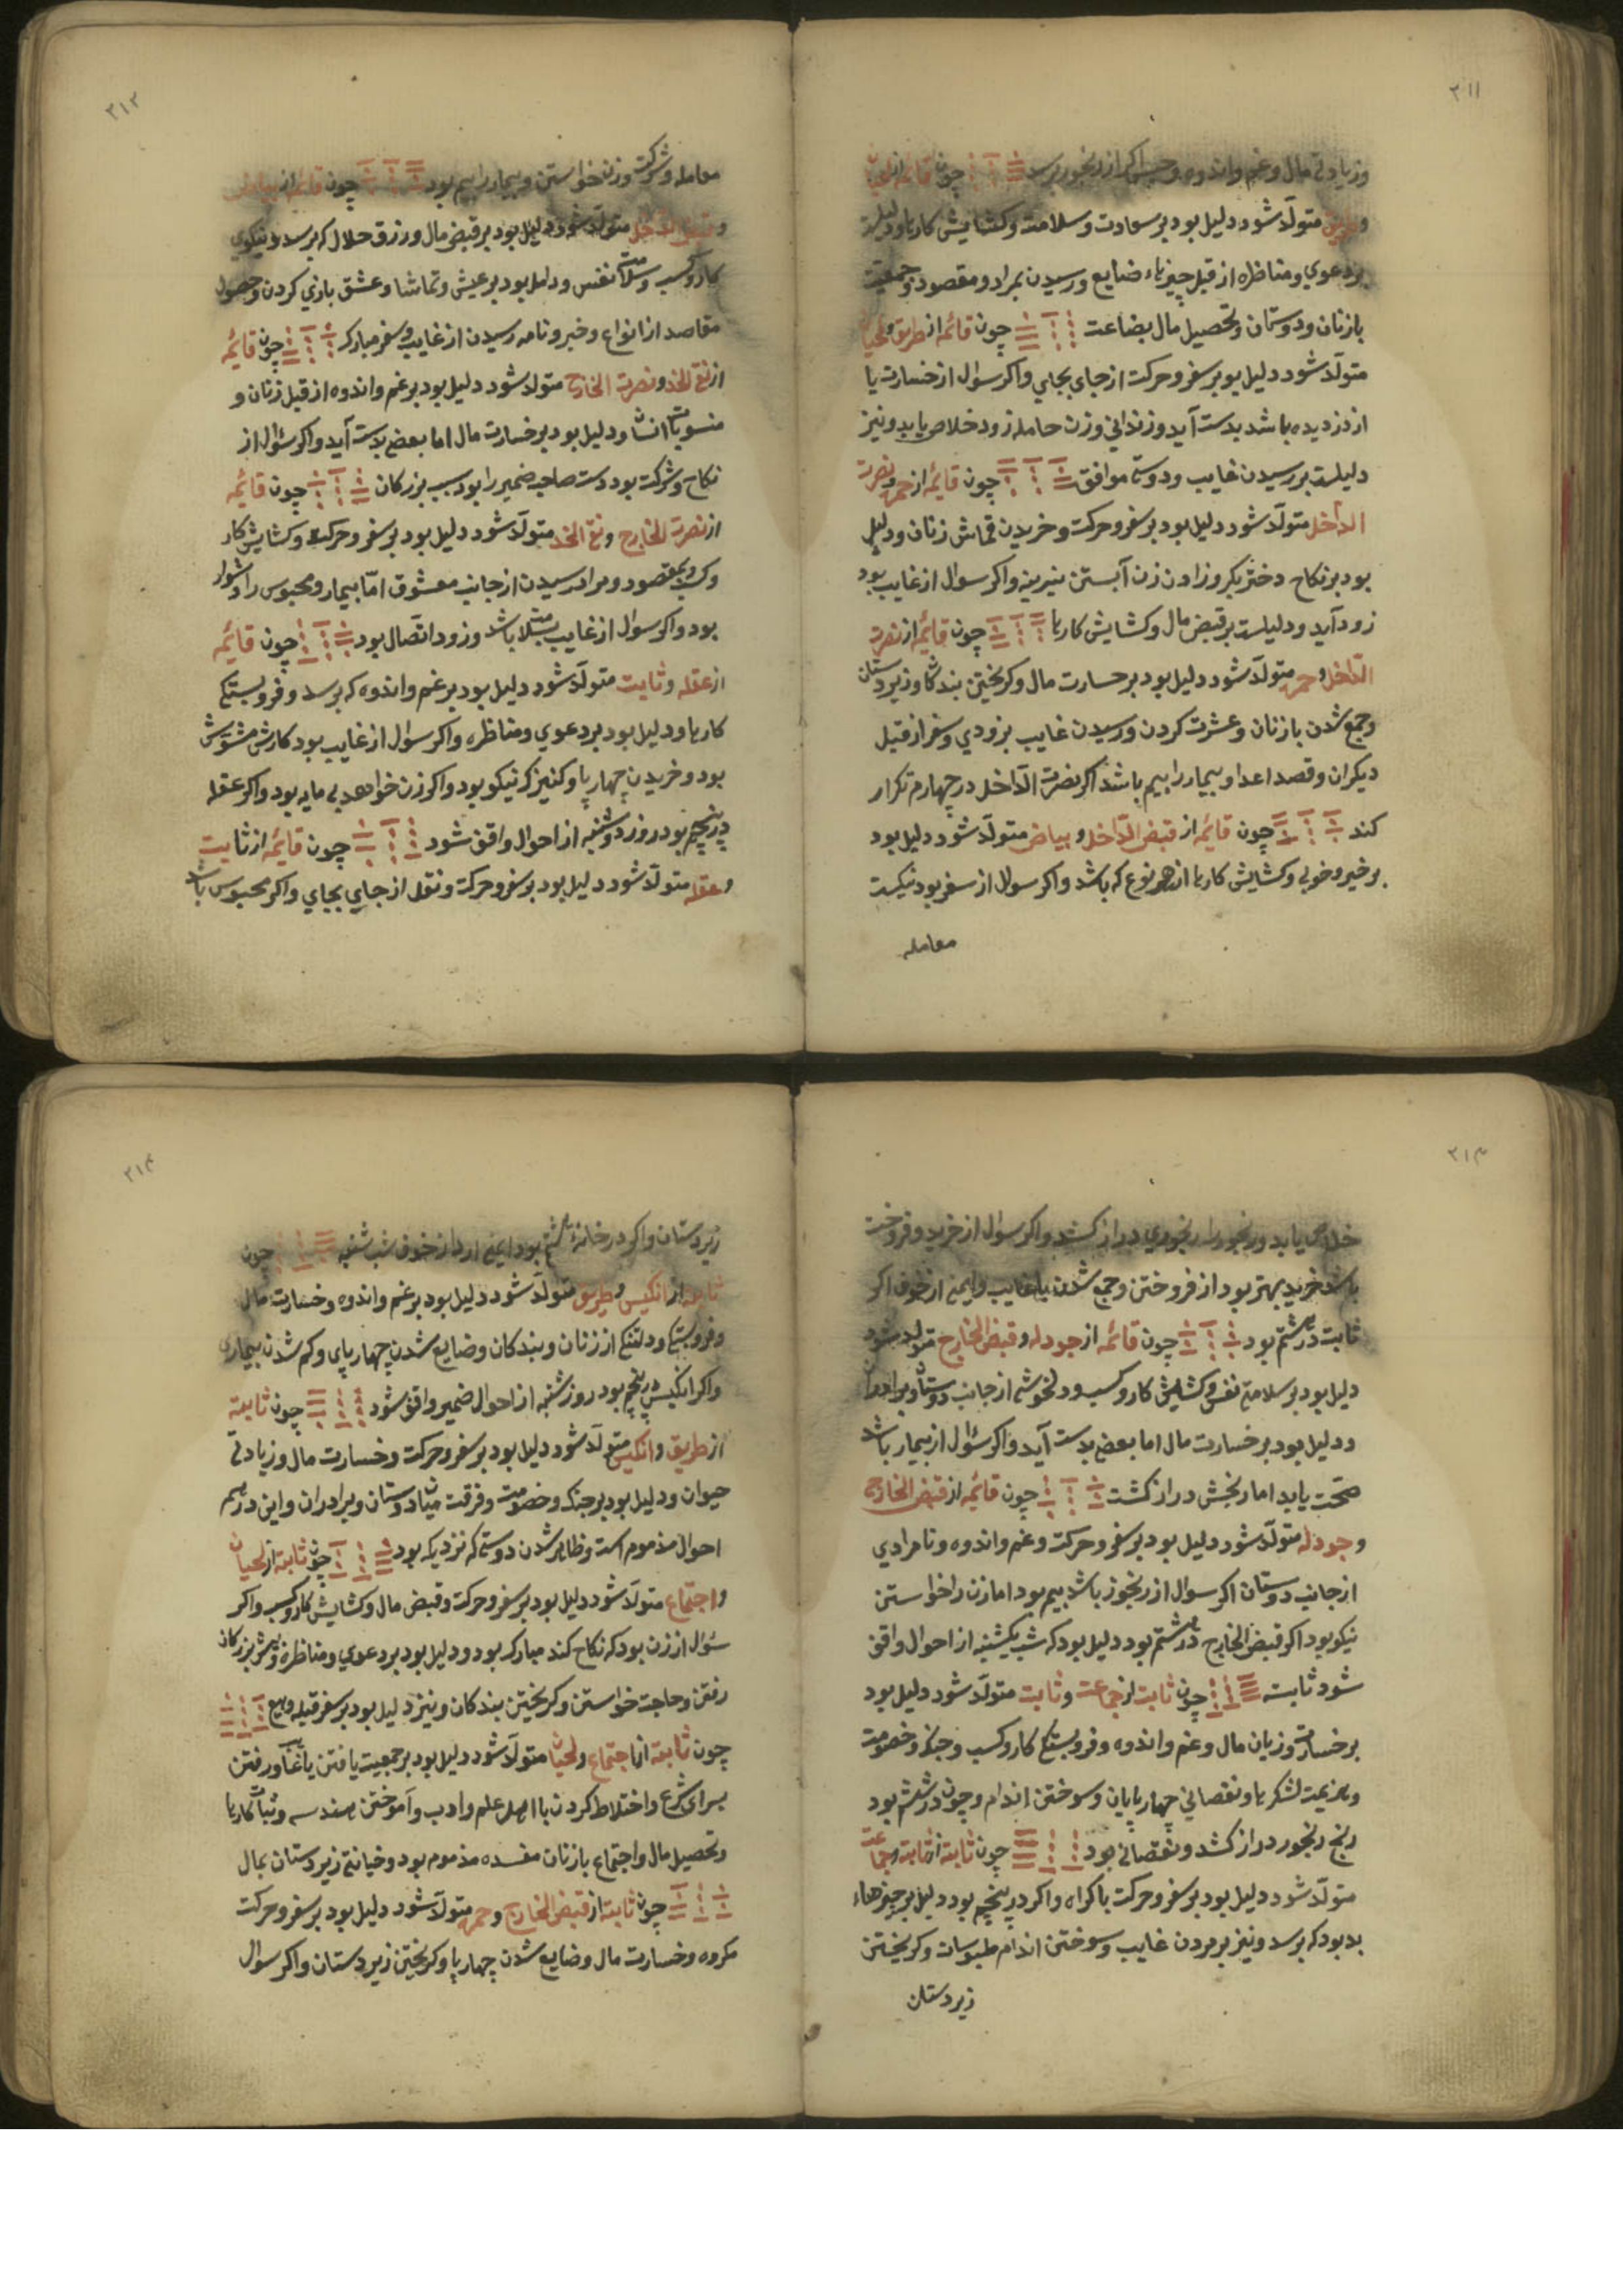 ۳۱۱
وزیادتی مال وغم واندوه وحبس اکر از رنجور پرسد چون قائمه از لحیان
و طریق متولّد شود دلیل بود بر سعادت وسلامت وکشایش کارها ودلیلست
بر دعوی ومناظره از قبل چیزهاء ضایع ورسیدن بمراد ومقصود وجمعیت
با زنان ودوستان وتحصیل مال بضاعت چون قائمه از طریق ولحیان
متولّد شود دلیل بود بر سفر وحرکت از جای بجای واکر سوال از خسارت یا
از دزدیده باشد بدست آید وزندانی وزن حامله زود خلاص یابد ونیز
دلیلست بر رسیدن غایب ودوستی موافق چون قائمه از حمره ونصرت
الداخل متولّد شود دلیل بود بر سفر وحرکت وخریدن قماش زنان ودلیل
بود بر نکاح دختر بکر وزادن زن آبستن نیرینه واکر سوال از غایب بود
زود آید ودلیلست بر قبض مال وکشایش کارها چون قائمه از نصرت
الدّاخل وحمره متولّد شود دلیل بود بر خسارت مال وکریختن بندکان وزیردستان
وجمع شدن با زنان وعشرت کردن ورسیدن غایب بزودی وسفر از قبل
دیکران وقصد اعدا وبیمار را بیم باشد اکر نصرت الدّاخل در چهارم تکرار
کند چون قائمه از قبض الدّاخل وبیاض متولّد شود دلیل بود
بر خیر وخوبی وکشایش کارها از هر نوع که باشد واکر سوال از سفر بود نیکست
معامله
۳۱۲
معامله وشرکت وزن خواستن وبیمار را بیم بود چون قائمه از بیاض
وقبض الداخل متولّد شود دلیل بود بر قبض مال ورزق حلال که برسد ونیکوی
کار وکسب وسلامت نفس ودلیل بود بر عیش وتماشا وعشق بازی کردن وحصول
مقاصد از انواع وخبر ونامه رسیدن از غایب وسفر مبارک چون قائمه
از نقی الخد ونصرت الخارج متولد شود دلیل بود بر غم واندوه از قبل زنان و
منسوبات ایشان ودلیل بود بر خسارت مال اما بعضی بدست آید واکر سؤال از
نکاح وشرکت بود دست صاحب ضمیر را بود سبب بزرکان چون قائمه
از نصرت الخارج ونقی الخد متولّد شود دلیل بود بر سفر وحرکت وکشایش کار
وکسب ومقصود ومراد رسیدن از جانب معشوق امّا بیمار ومحبوس را دشوار
بود واکر سوال از غایب مبتلا باشد وزود اتّصال بود چون قائمه
از عقله وثابت متولّد شود دلیل بود بر غم واندوه که برسد وفروبستکی
کارها ودلیل بود بر دعوی ومناظره واکر سوال از غایب بود کارش مشوّش
بود وخریدن چهارپا وکنیزک نیکو بود واکر زن خواهد بی مایه بود واکر عقله
در پنجم بود روز دوشنبه از احوال واقف شود چون قائمه از ثابت
وعقله متولّد شود دلیل بود بر سفر وحرکت ونقل از جای بجای واکر محبوس باشد
۳۱۳
خلاص یابد ورنجور را رنجوری دراز کشد واکر سوال از خرید وفروخت
باشد خرید بهتر بود از فروختن وجمع شدن با غایب وایمنی از خوف اکر
ثابت در هشتم بود چون قائمه از جودله وقبض الخارج متولد شود
دلیل بود بر سلامتی نفس وکشایش کار وکسب ودلخوشی از جانب دوستان وبرادران
ودلیل بود بر خسارت مال اما بعضی بدست آید واکر سؤال از بیمار باشد
صحّت یابد اما رنجش دراز کشت چون قائمه از قبض الخارج
وجودله متولّد شود دلیل بود بر سفر وحرکت وغم واندوه ونامرادی
از جانب دوستان اکر سوال از رنجور باشد بیم بود اما زن را خواستن
نیکو بود اکر قبض الخارج در هشتم بود دلیل بود که شب یکشنبه از احوال واقف
شود ثابته چون ثابت از جماعت وثابت متولّد شود دلیل بود
بر خسارت وزیان مال وغم واندوه وفروبستکی کار وکسب وجنک وخصومت
وهزیمت لشکرها ونقصانی چهارپایان وسوختن اندام وچون در ششم بود
رنج رنجور دراز کشد ونقصانی بود چون ثابته از ثابته وجماعت
متولّد شود دلیل بود بر سفر وحرکت باکراه واکر در پنجم بود دلیل بر چیزهاء
بد بود که برسد ونیز بر مردن غایب وسوختن اندام ملبوسات وکریختن
زیردستان
۳۱۴
زیردستان واکر در خانهٔ هشتم بود ایمنی آرد از خوف شب شنبه چون
ثابته از انکیس وطریق متولّد شود دلیل بود بر غم واندوه وخسارت مال
وفروبستکی ودلتنکی از زنان وبندکان وضایع شدن چهارپای وکم شدن بیماری
واکر انکیس در پنجم بود روز شنبه از احوال ضمیر واقف شود چون ثابته
از طریق وانکیس متولّد شود دلیل بود بر سفر وحرکت وخسارت مال وزیادتی
حیوان ودلیل بود بر جنک وخصومت وفرقت میان دوستان وبرادران واین در همه
احوال مذموم است وظاهر شدن دوستی که نزدیک بود چون ثابته از لحیان
واجتماع متولّد شود دلیل بود بر سفر وحرکت وقبض مال وکشایش کار وکسب واکر
سؤال از زن بود که نکاح کند مبارک بود ودلیل بود بر دعوی ومناظره وپیش بزرکان
رفتن وحاجت خواستن وکریختن بندکان ونیز دلیل بود بر سفر قبله وبیع
چون ثابته از اجتماع ولحیان متولّد شود دلیل بود بر جمعیت یافتن با غایب ورفتن
بسرای شرع واختلاط کردن با اهل علم وادب وآموختن هندسه وثبات کارها
وتحصیل مال واجتماع با زنان مفسده مذموم بود وخیانتی زیردستان بمال
چون ثابته از قبض الخارج وحمره متولّد شود دلیل بود بر سفر وحرکت
مکروه وخسارت مال وضایع شدن چهارپا وکریختن زیردستان واکر سوال